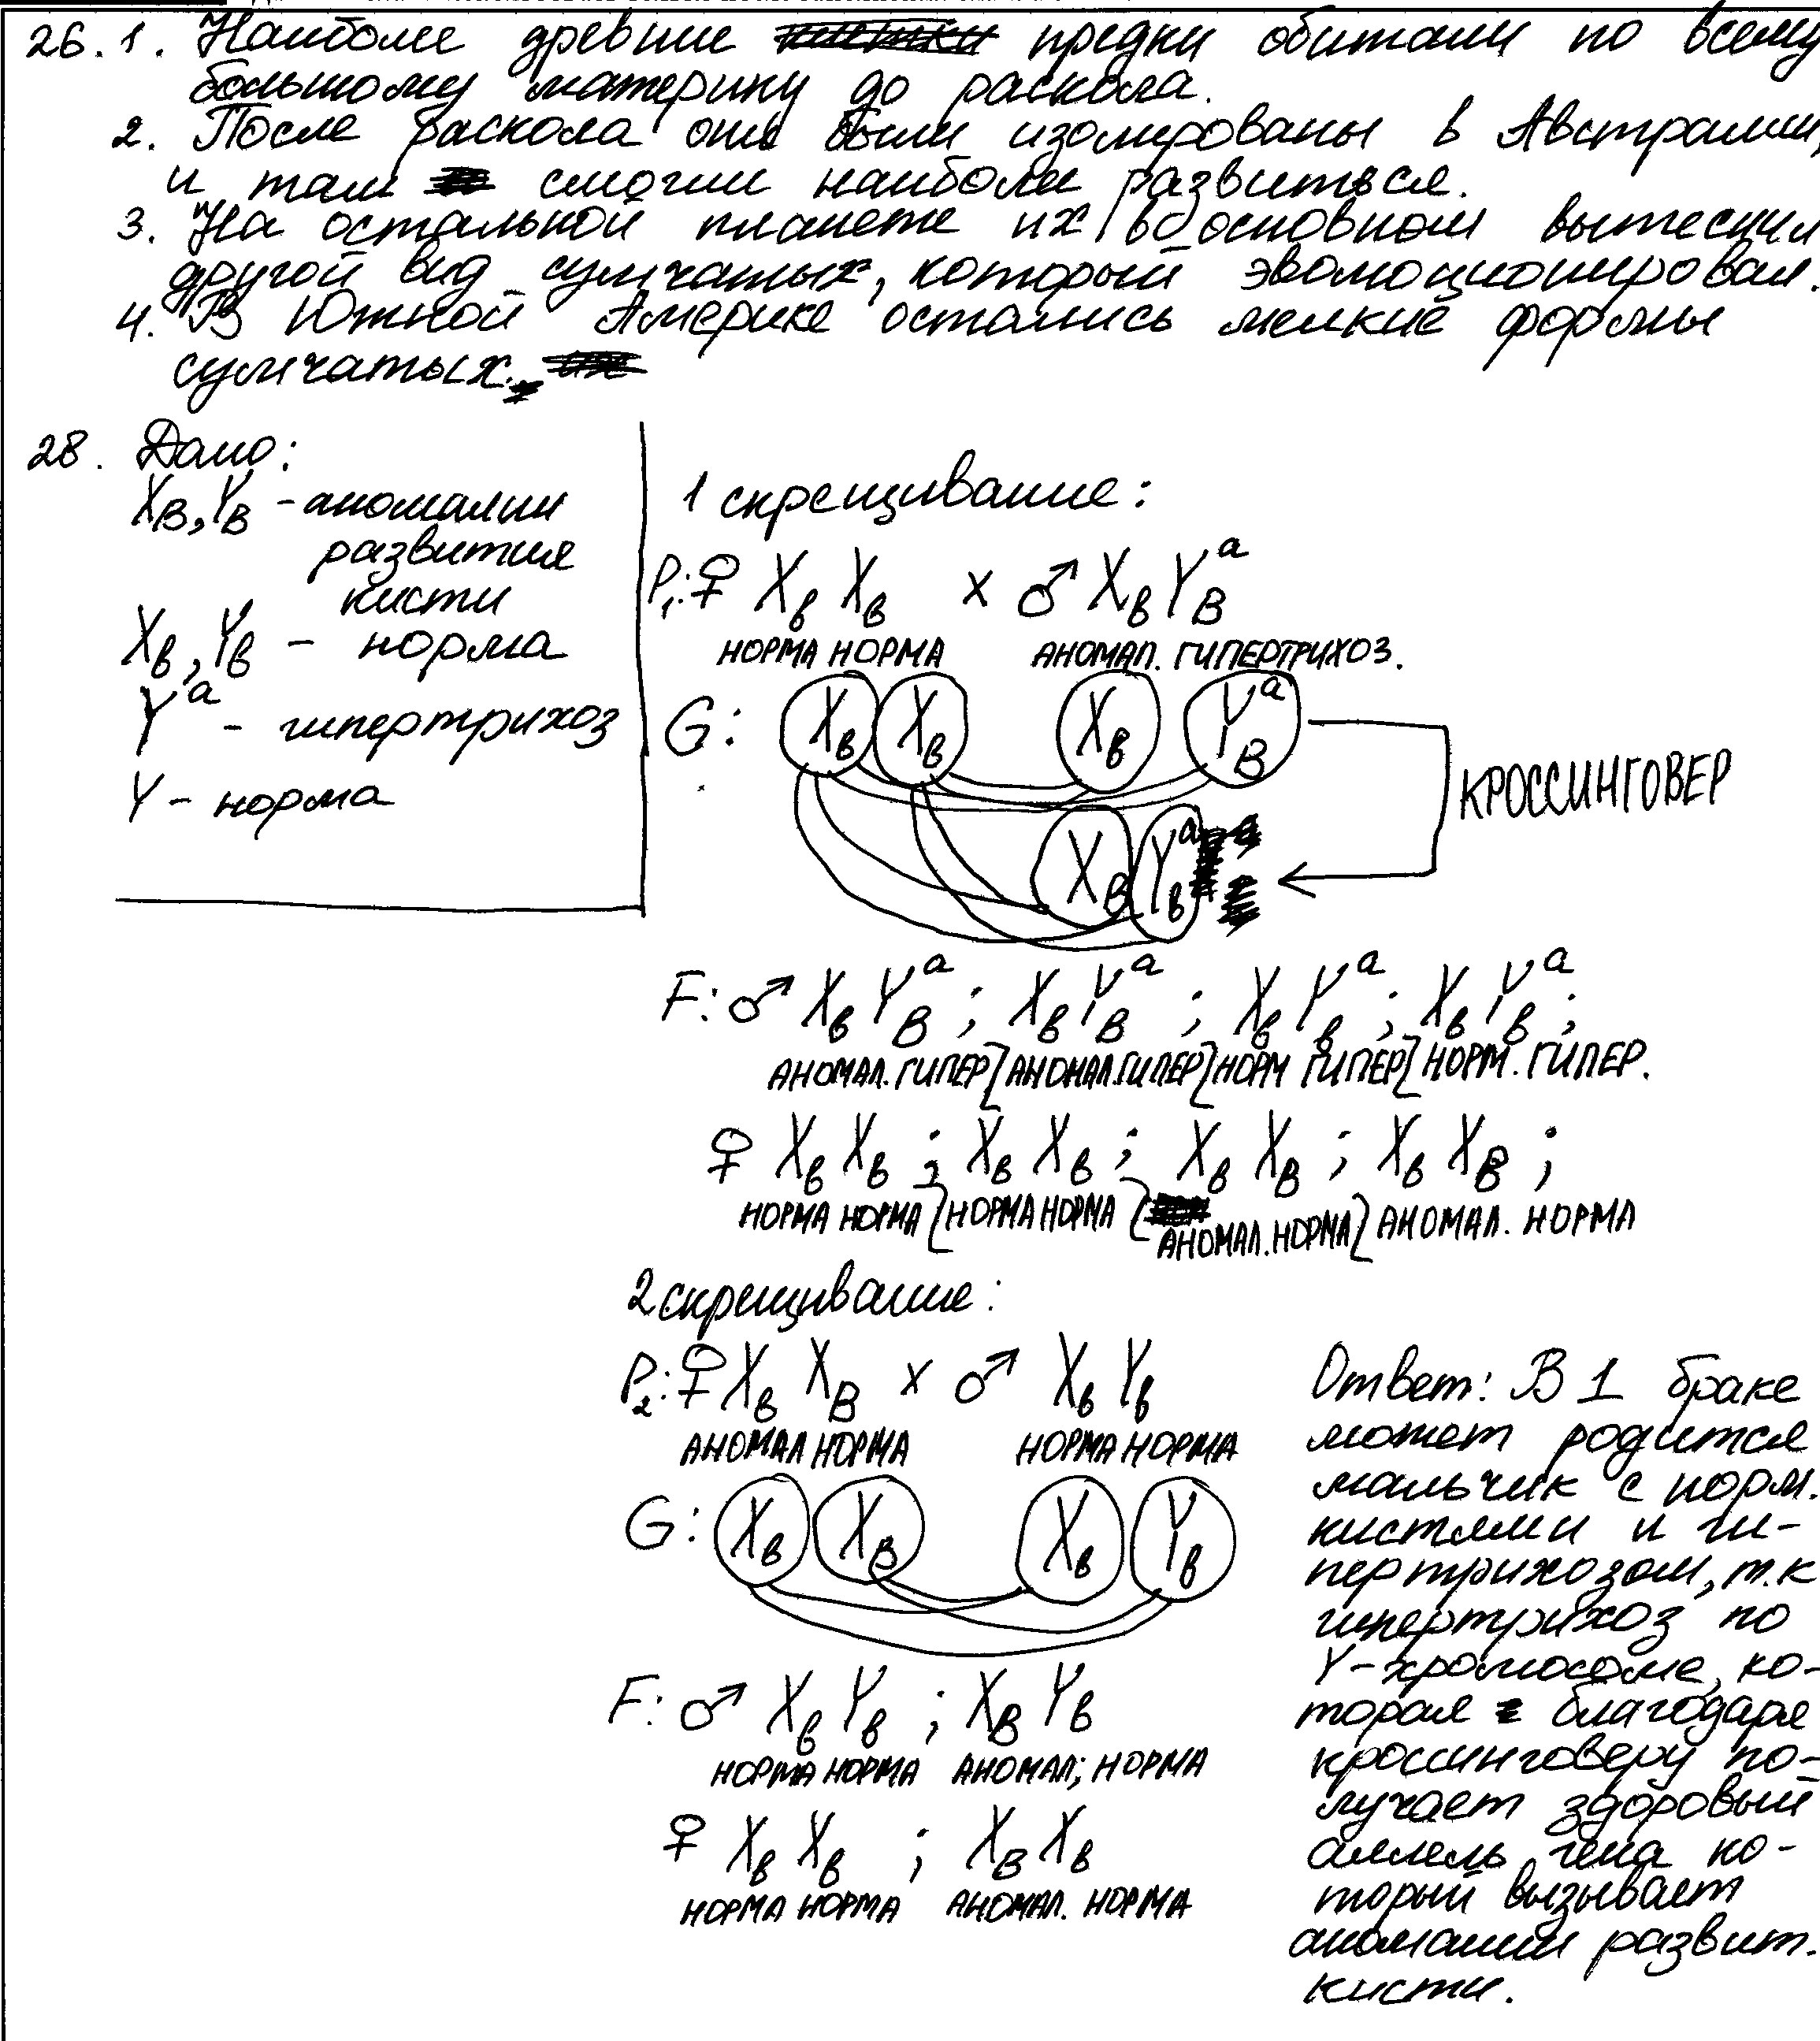 26. 1. Наиболее древние предки обитали по всему
большому материку до раскола.
2. После раскола они были изолированы в Австралии,
и там смогли наиболее развиться.
3. На остальной планете их в основном вытеснил
другой вид сумчатых, который эволюционировал.
4. В Южной Америке остались мелкие формы
сумчатых.
28. Дано:
X_B, Y_B - аномалии
развития
кисти
X_в, Y_в - норма
Y^a - гипертрихоз
Y - норма
1 скрещивание:
P₁: ♀ X_в X_в x ♂ X_в Y_B^a
НОРМА НОРМА АНОМАЛ. ГИПЕРТРИХОЗ.
G: X_в X_в X_в Y_B^a
КРОССИНГОВЕР
X_B Y_в^a
F: ♂ X_в Y_B^a ; X_в Y_B^a ; X_в Y_в^a ; X_в Y_в^a ;
АНОМАЛ. ГИПЕР АНОМАЛ. ГИПЕР НОРМ ГИПЕР НОРМ. ГИПЕР.
♀ X_в X_в ; X_в X_в ; X_в X_B ; X_в X_B ;
НОРМА НОРМА НОРМА НОРМА АНОМАЛ. НОРМА АНОМАЛ. НОРМА
2 скрещивание:
P₂: ♀ X_в X_B x ♂ X_в Y_в
АНОМАЛ НОРМА НОРМА НОРМА
G: X_в X_B X_в Y_в
F: ♂ X_в Y_в ; X_B Y_в
НОРМА НОРМА АНОМАЛ; НОРМА
♀ X_в X_в ; X_B X_в
НОРМА НОРМА АНОМАЛ. НОРМА
Ответ: В 1 браке
может родится
мальчик с норм.
кистями и ги-
пертрихозом, т.к
гипертрихоз по
Y-хромосоме, ко-
торая благодаря
кроссинговеру по-
лучает здоровый
аллель гена ко-
торый вызывает
аномалии развит.
кисти.